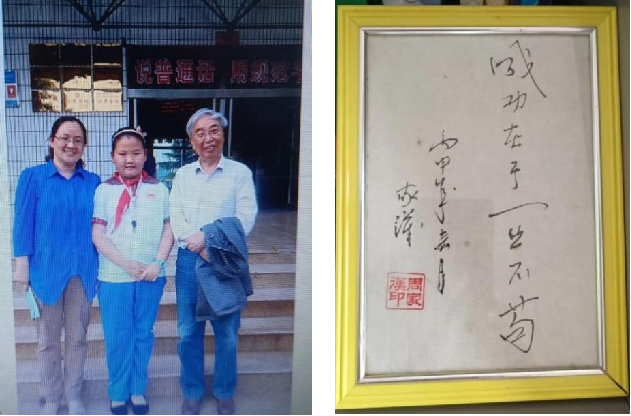 说普通话 用规范字
成功在于一丝不苟
丙申年 月
家漢
周家
漢印